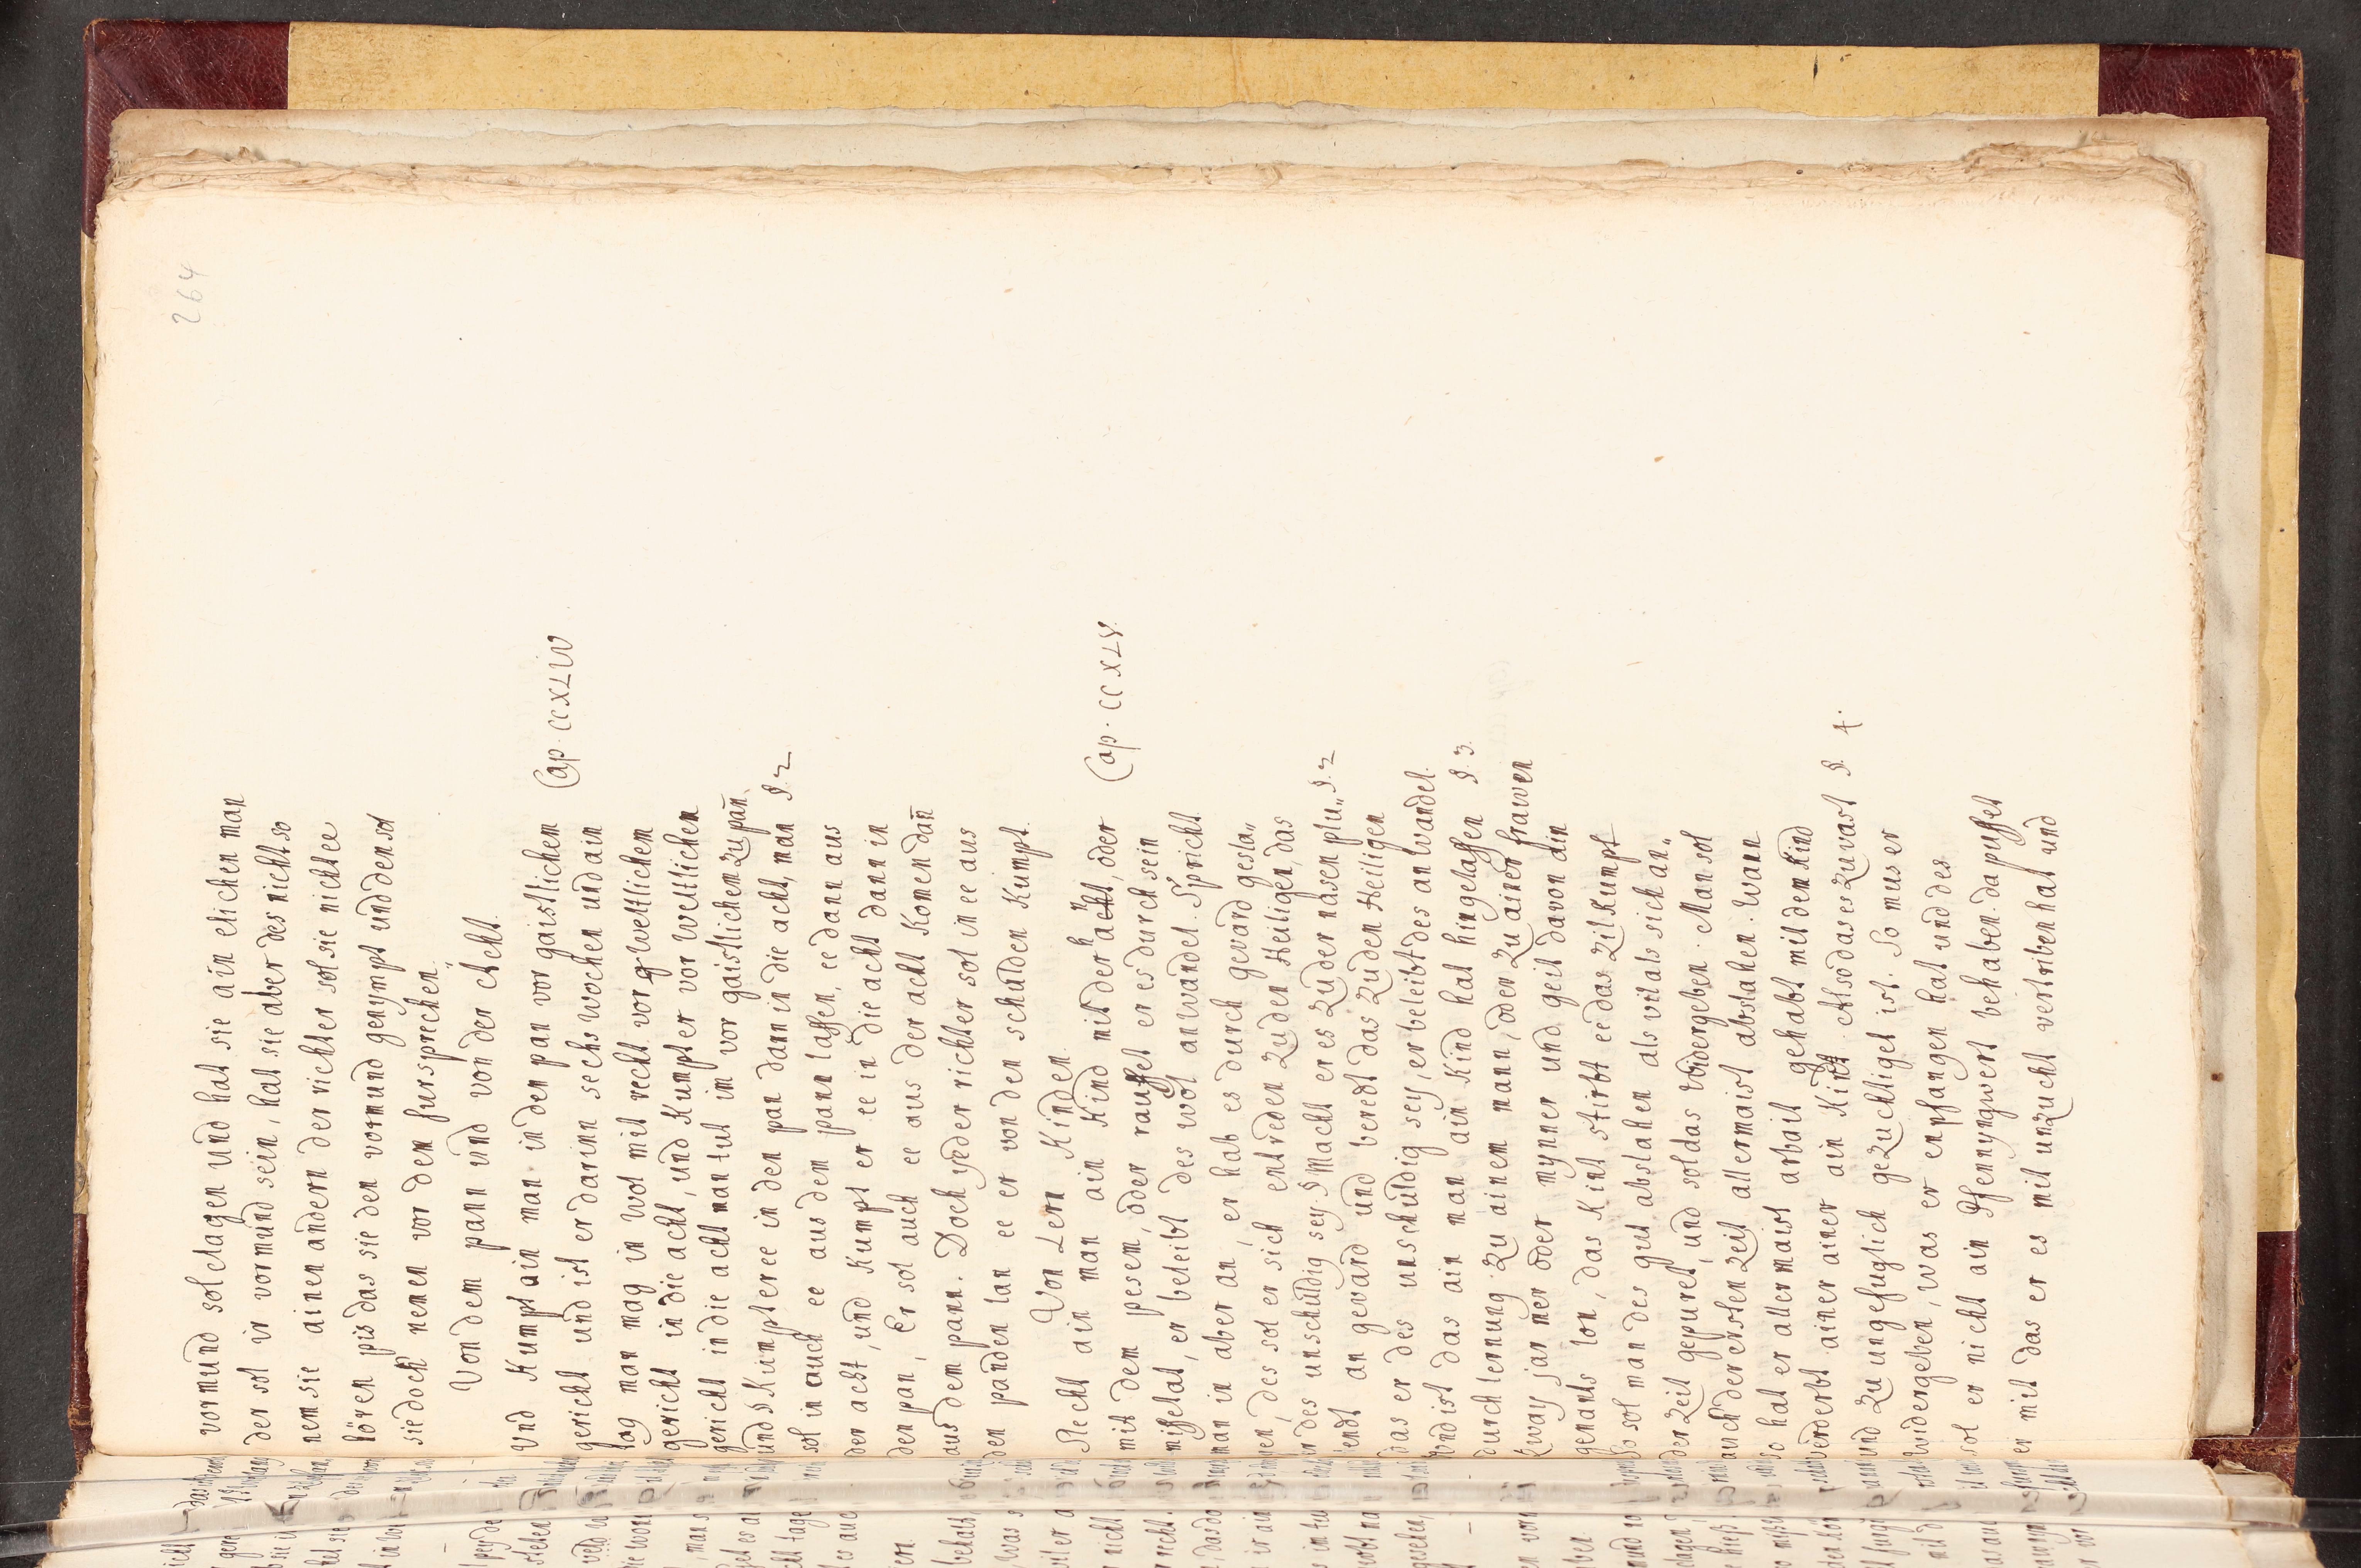 264
vormund sol clagen und hat sie ain elichen man
der sol ir vormund sein, hat sie aber des nicht so
nem sie ainen andern der richter sol sie nicht ee
hören pis das sie den vormund genympt und den sol
sie doch nenen vor dem fursprechen
Von dem pann und von der Acht.
Und Kumpt ain man in den pan vor gaistlichem Cap. CCXLIV
gericht und ist er darinn sechs wochen und ain
tag man mag in wol mit recht vor weltlichem
gericht in die acht, und Kumpt er vor weltlichem
gericht in die acht man tut im vor gaistlichem zu pañ
und Kumpt er ee in den pan dann in die acht, man §. 2
sol in auch ee aus dem pann lassen, ee dann aus
der acht, und Kumpt er ee in die acht dann in
den pan, Er sol auch ee aus der acht Komen dañ
aus dem pann. Doch yeder richter sol in ee aus
den panden lan ee er von den schulden Kumpt.
Von Lern Kinden.
Slecht ain man ain Kind mit der hant, oder Cap. CCXLV.
mit dem pesem, oder rauffet er es durch sein
missetat, er beleibt des wol an wandel. Spricht
man in aber an, er hab es durch gevard gesla„
hen, des sol er sich entreden zu den Heiligen, das
er des unschuldig sey. Macht er es zu der nasen plu„ §. 2
tend an gevard und beredt das zu den Heiligen
das er des unschuldig sey, er beleibt des an wandel.
Und ist das ain man ain Kind hat hingelassen §. 3.
durch lernung zu ainem mann, oder zu ainer frawen
zway jar mer oder mynner und geit davon ain
genants lon, das Kint stirbt ee das zil Kumpt
so sol man des gut abslahen als vil als sich an„
der zeit gepuret, und sol das widergeben. Man sol
auch der ersten zeit allermaist abslahen. Wann
so hat er allermaist arbait gehabt mit dem Kind
verderbt ainer ainer ain Kint Also das es zu vast §. 4.
und zu ungefuglich gezuchtiget ist. So mus er
widergeben, was er enpfangen hat und des
sol er nicht ain Pfennyngwert behaben. da pusset
er mit das er es mit unzucht vertriben hat und